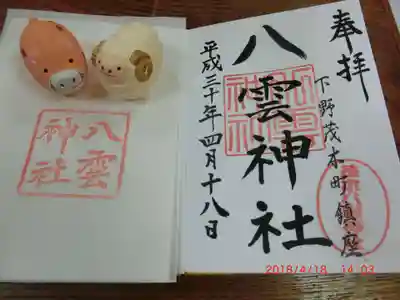 奉拝
下野茂木町鎮座
八雲神社
平成三十年四月十八日
八雲
神社
2018/4/18 14:03